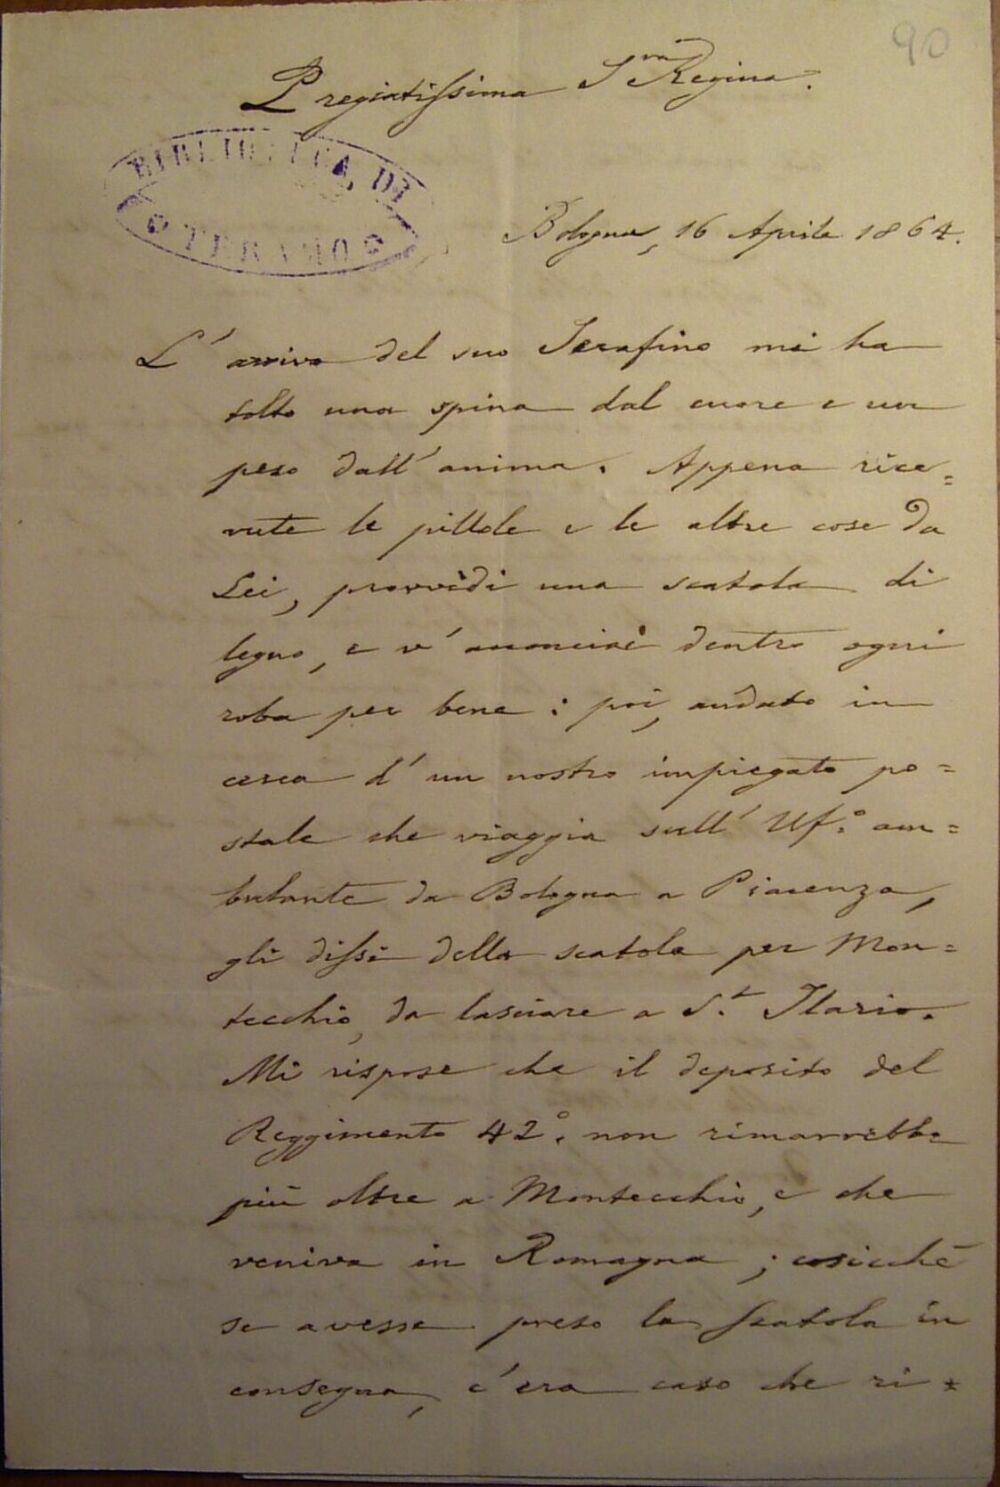 90
Pregiatissima S.ra Regina.
BIBLIOTECA DI
TERAMO
Bologna, 16 Aprile 1864.
L'arrivo del suo Serafino mi ha
tolto una spina dal cuore e un
peso dall'anima. Appena rice=
vute le pillole e le altre cose da
Lei, provvidi una scatola di
legno, e v'acconciai dentro ogni
roba per bene: poi, andato in
cerca d'un nostro impiegato po=
stale che viaggia sull'Uf.° am=
bulante da Bologna a Piacenza,
gli dissi della scatola per Mon=
tecchio, da lasciare a S.t Ilario.
Mi rispose che il deposito del
Reggimento 42°. non rimarrebbe
più oltre a Montecchio, e che
veniva in Romagna; cosicchè
se avesse preso la scatola in
consegna, c'era caso che ri=